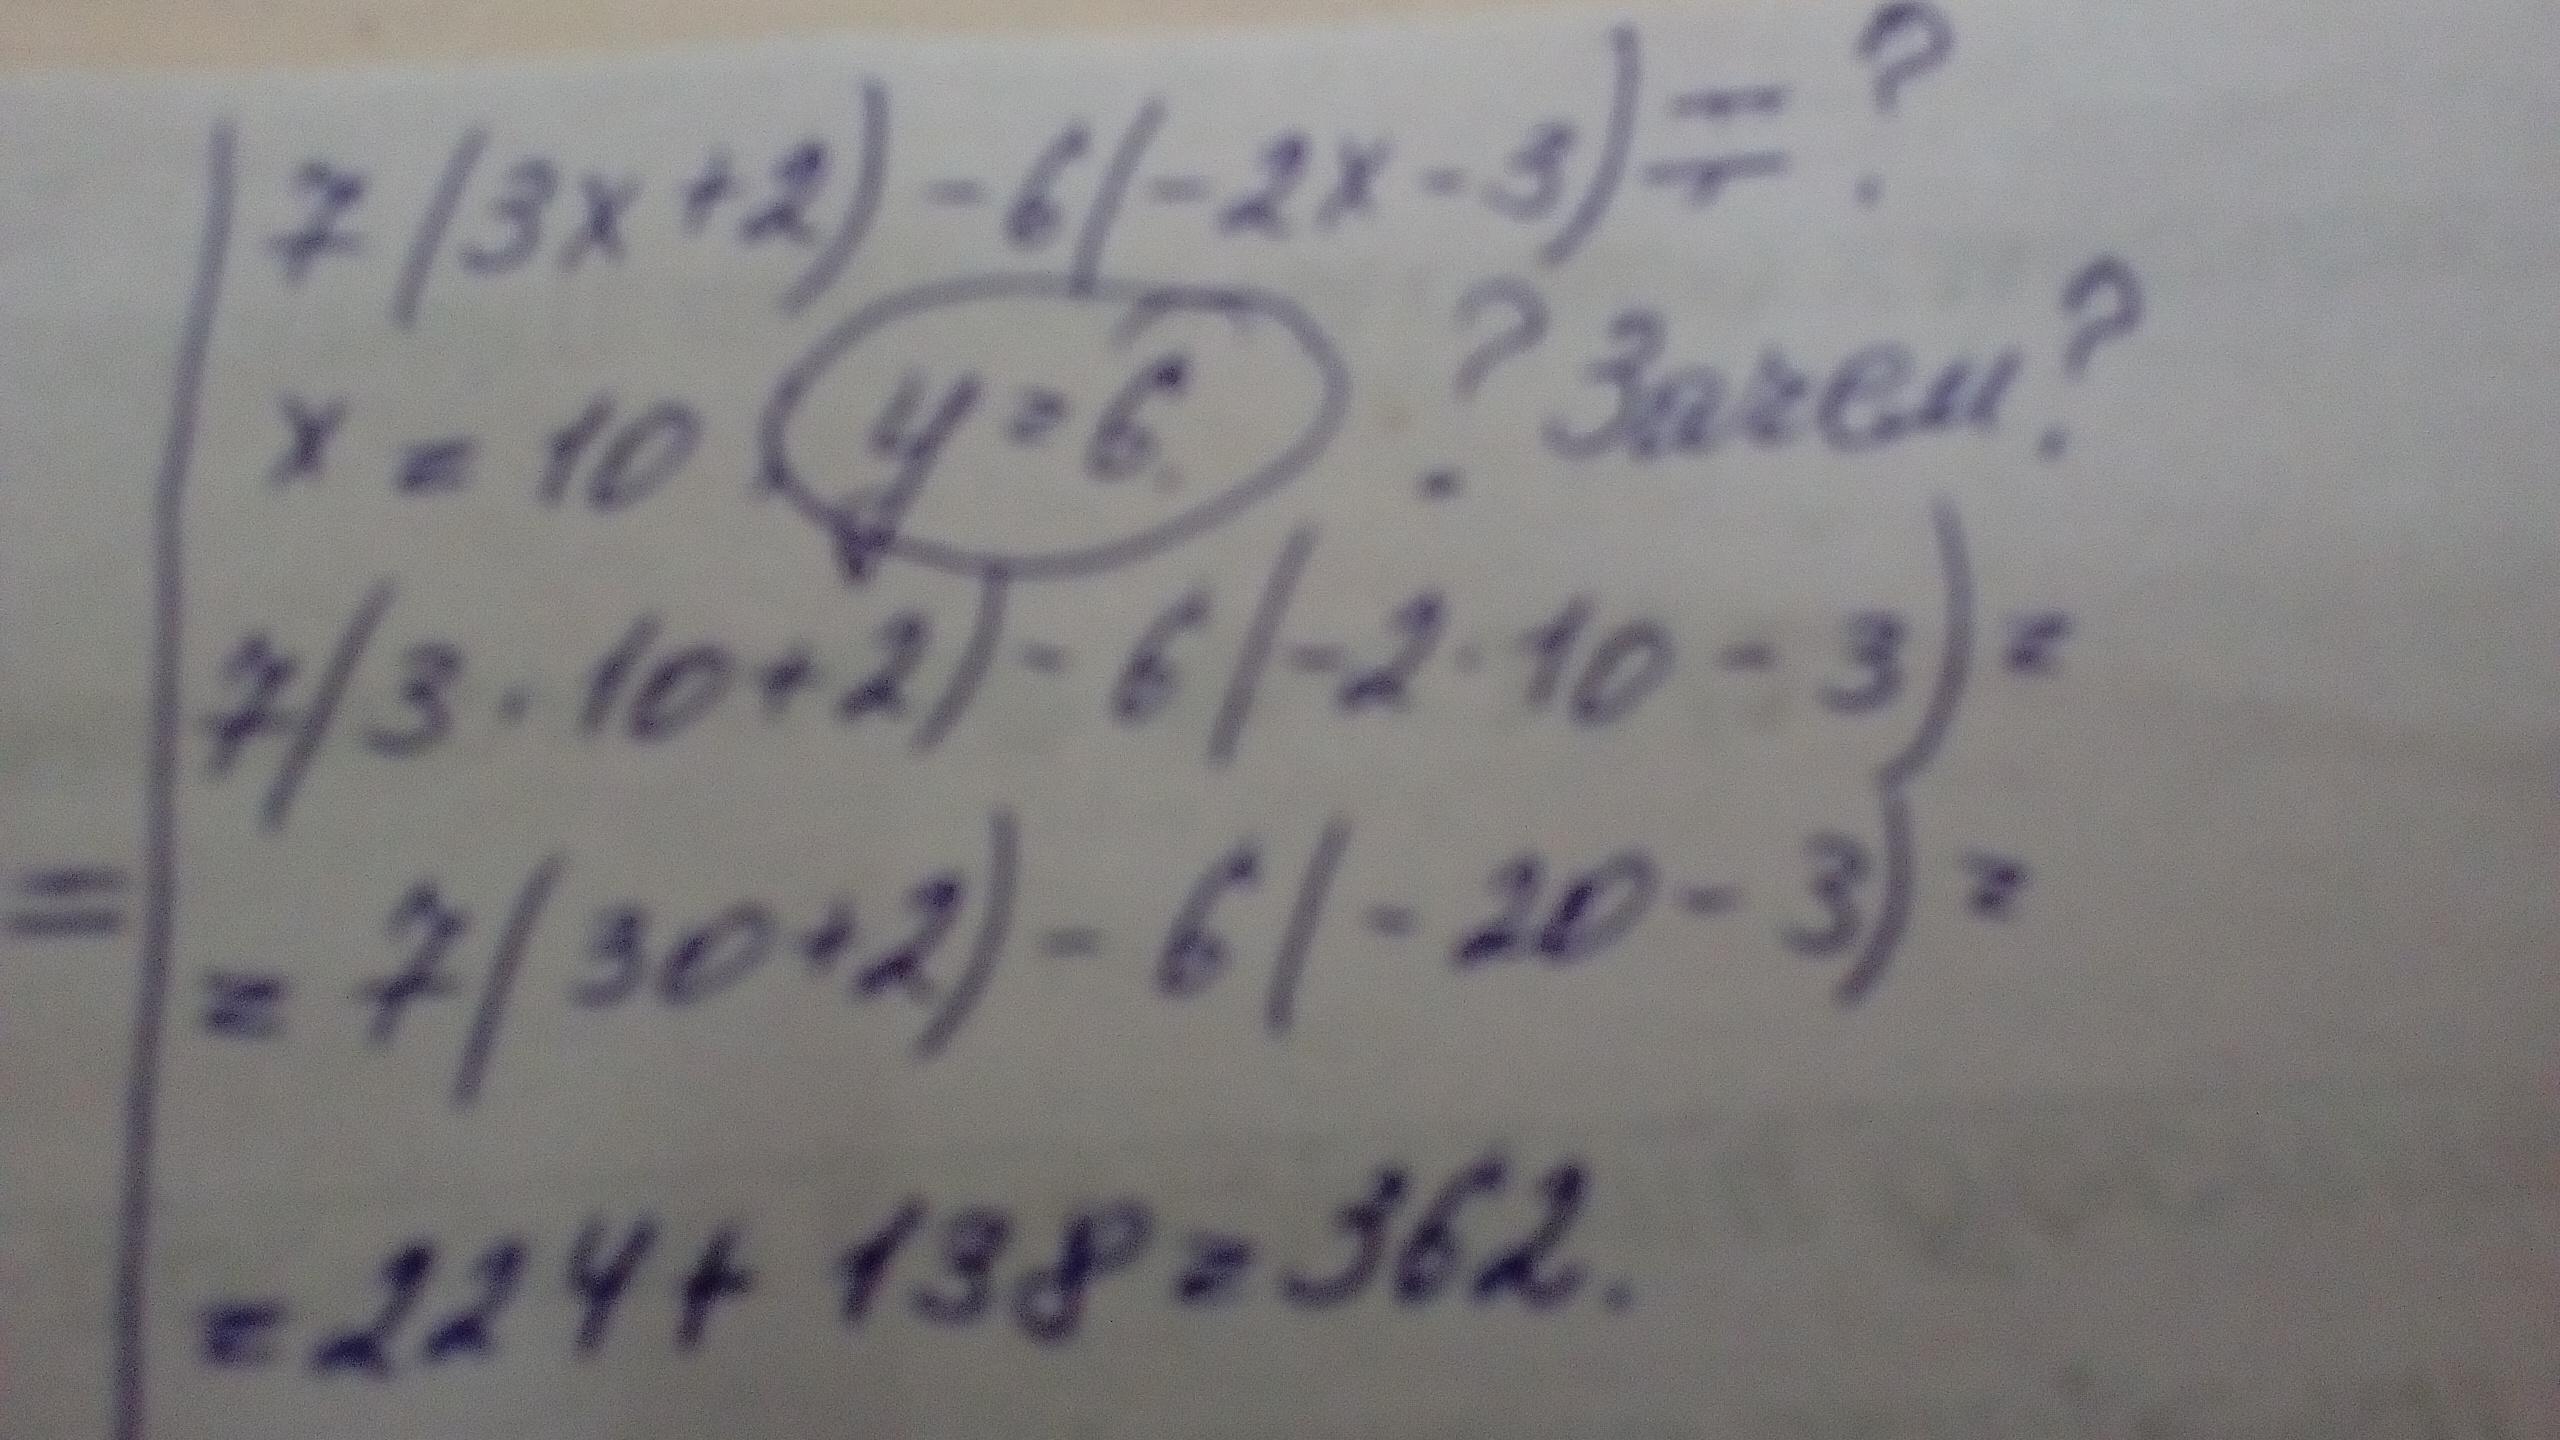 7(3x+2)-6(-2x-3)=?
x=10 y=6. ? Зачем?
7(3·10+2)-6(-2·10-3)=
=
=7(30+2)-6(-20-3)=
=224+138=362.